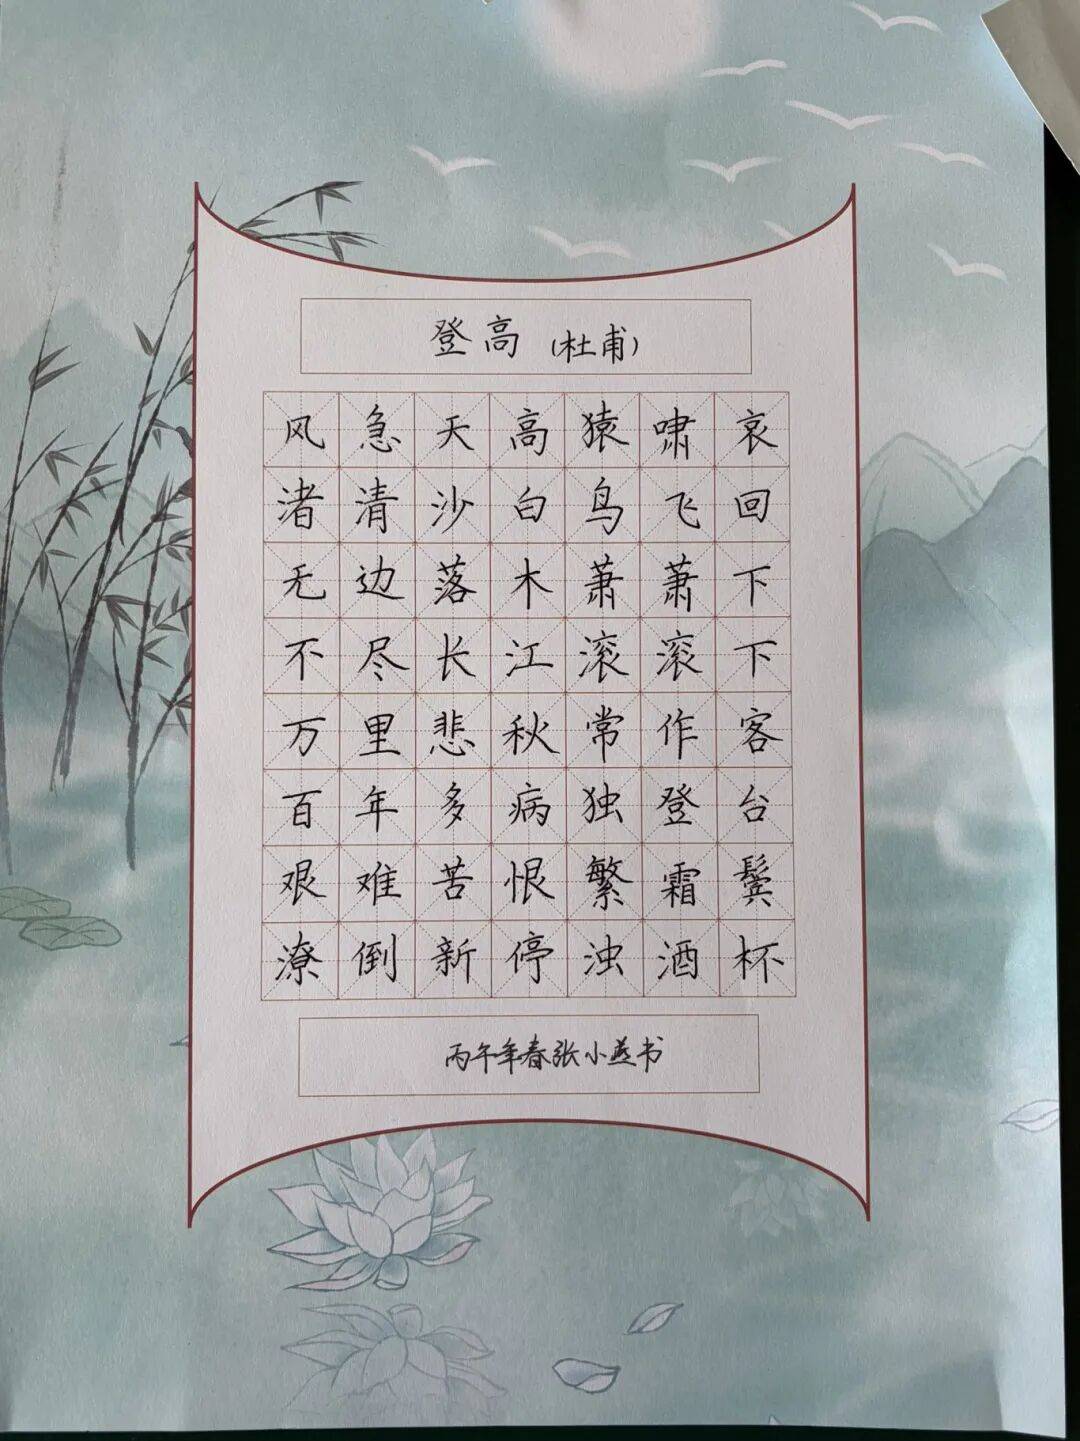 登高（杜甫）
风急天高猿啸哀
渚清沙白鸟飞回
无边落木萧萧下
不尽长江滚滚下
万里悲秋常作客
百年多病独登台
艰难苦恨繁霜鬓
潦倒新停浊酒杯
丙午年春张小燕书